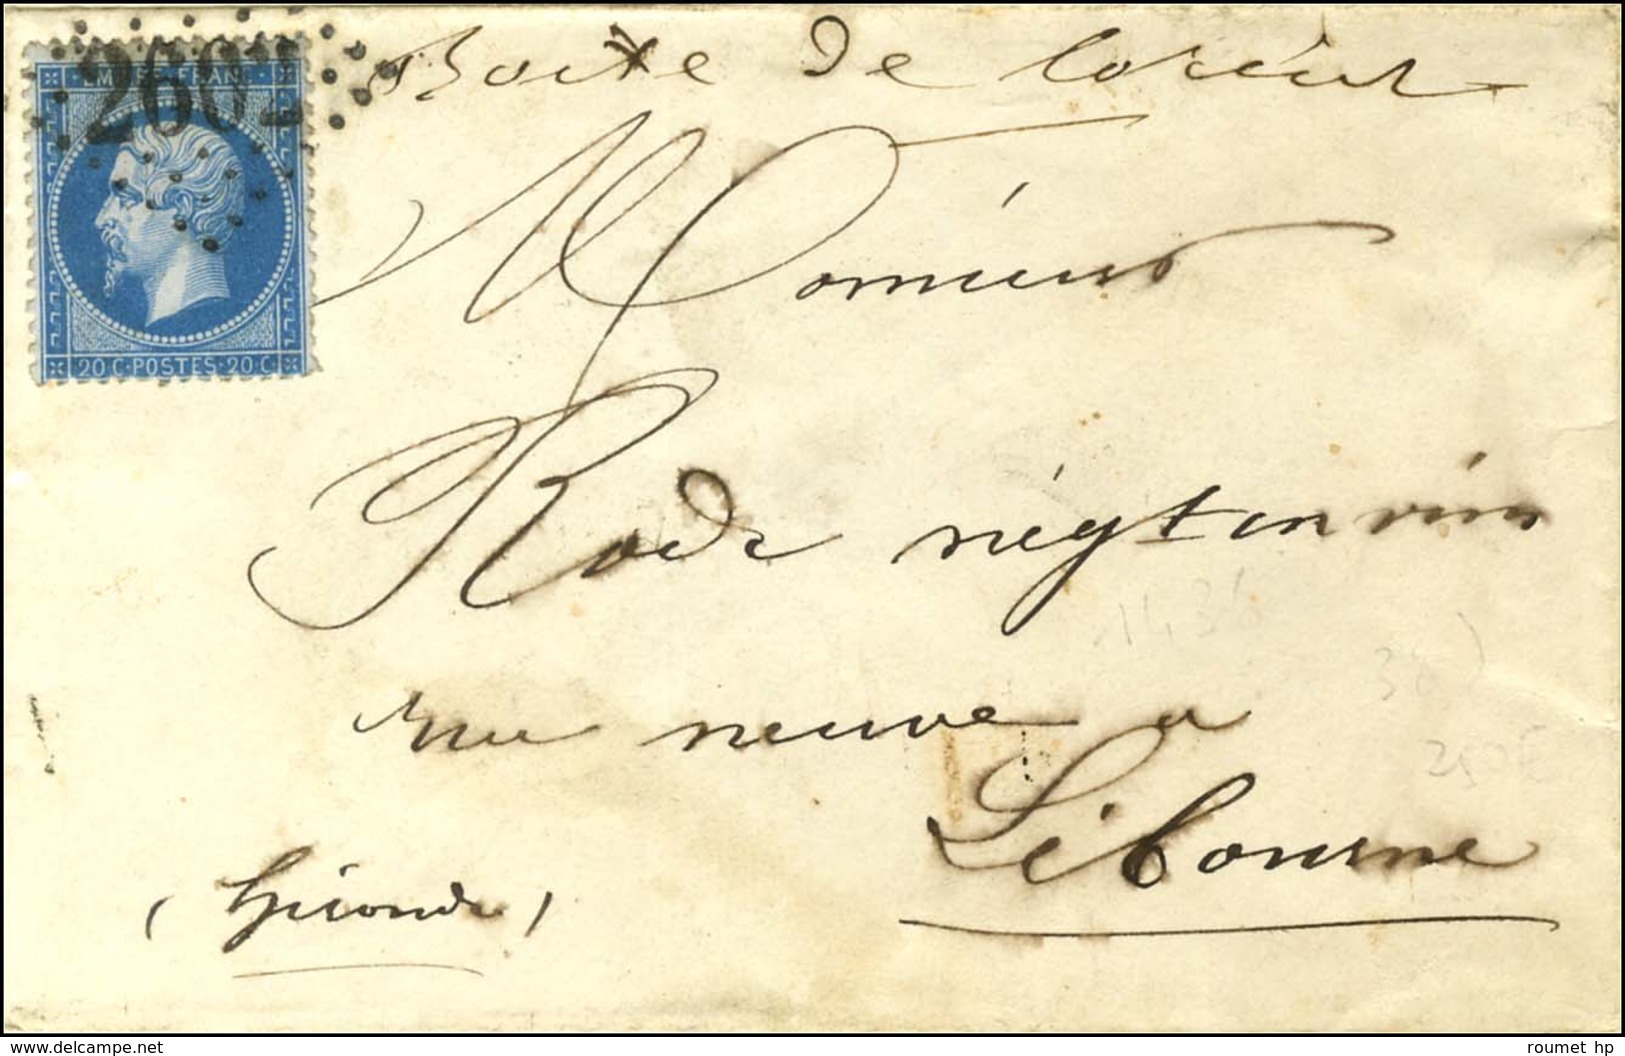 2602
EMPIRE FRANC
20 C · POSTES · 20 C
Boite de Coréus
Monsieur
Rode négt en vins
rue neuve a
Libourne
(Gironde)
1436
250€
www.delcampe.net
roumet hp